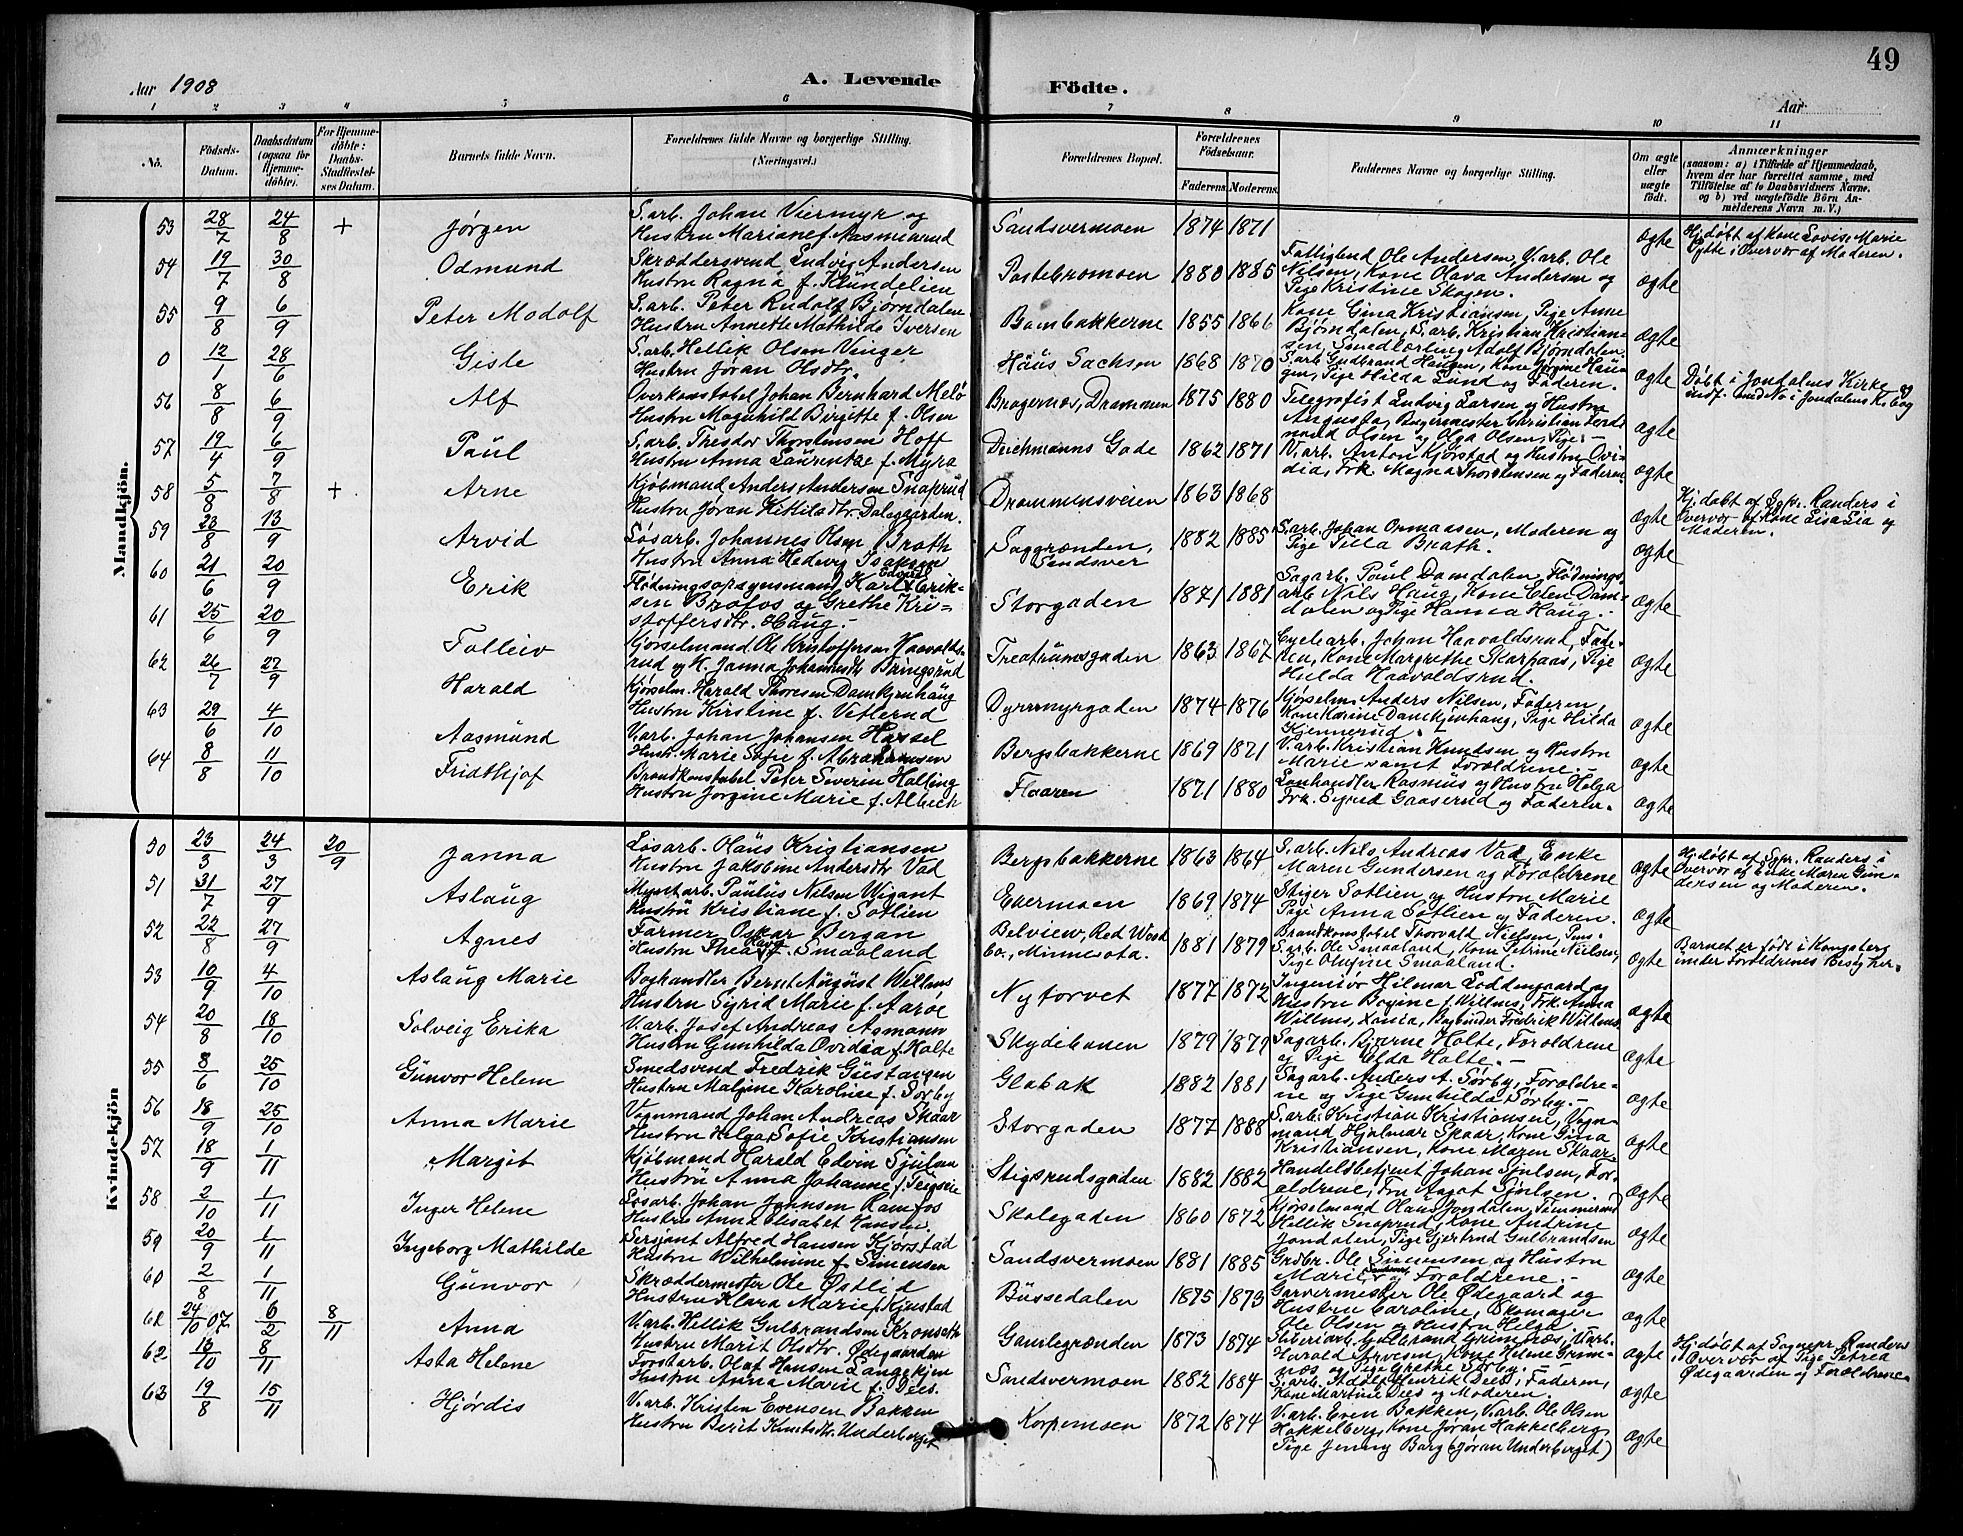 49
Aar 1908
A. Levende Födte.
Aar
1 2 3 4 5 6 7 8 9 10 11
No.
Födsels-Datum.
Daabsdatum (ogsaa for Hjemme-döbte).
For Hjemme-döbte: Daabs-Stadfæstel-ses Datum.
Barnets fulde Navn.
Forældrenes fulde Navne og borgerlige Stilling. (Næringsvei.)
Forældrenes Bopæl.
Forældrenes Födselsaar.
Faderens. Moderens.
Faddernes Navne og borgerlige Stilling.
Om ægte eller uægte födt.
Anmærkninger
(saasom: a) i Tilfælde af Hjemmedaab,
hvem der har forrettet samme, med
Tilföielse af to Daabsvidners Navne.
og b) ved uægtefödte Börn An-
melderens Navn m. V.)
Mandkjön.
53 28/7 24/8 + Jørgen
S.arb. Johan Viermyr og
Hustru Mariane f. Aasmunrud
Sandsvermoen 1874 1871 ægte
Hj.døbt af Kone Lovise Marie
Lytte i Overvær af Moderen.
54 19/7 30/8 Odmund
Skræddersvend Ludvig Andersen
Hustru Ragna f. Klundelien
Pastebromoen 1880 1885
Fattiglend Ole Andersen, V.arb. Ole
Nilsen, Kone Olava Andersen og
Pige Kristine Skogen. ægte
55 9/8 6/9 Peter Modolf
S.arb. Peter Rudolf Bjørndalen
Hustru Annette Mathilde Iversen
Bombakkerne 1855 1866
Kone Gina Kristiansen, Pige Anne
Bjørndalen, S.arb. Kristian Kristian-
sen, Smedlærling Adolf Bjørndalen. ægte
0 12/1 28/6 Gisle
S.arb. Hellik Olsen Vinger
Hustru Jøran Olsdtr.
Haus Sachsen 1868 1870
S.arb. Gudbrand Haugen, Kone Jørgine Hau-
gen, Pige Hilda Lund og Faderen. ægte
Døbt i Jondalens Kirke og
indf. med No i Jondalens K.bog
56 8/8 6/9 Alf
Overkonstabel Johan Bernhard Melø
Hustru Magnhild Birgitte f. Olsen
Bragernes, Drammen 1875 1880
Telegrafist Ludvig Larsen og Hustru
Augusta, Bøgersmester Christian Ferdi-
nand Olsen og Olga Olsen, Pige. ægte
57 19/4 6/9 Paul
S.arb. Tresdor Thorstensen Hoff
Hustru Anna Laurentze f. Myra
Deichmanns Gade 1862 1871
V.arb. Anton Kjørstad og Hustru Ovi-
dia, Frk. Magna Thorstensen og Faderen. ægte
58 5/8 7/8 + Arne
Kjøbmand Anders Andersen Snaprud
Hustru Jøran Kittilsdtr. Dalsgaarden.
Drammensveien 1863 1868 ægte
Hj.døbt af Sgpr. Randers i
Overvær af Kone Lisa Lia og
Moderen.
59 23/8 13/9 Arvid
Løsarb. Johannes Olsen Brath
Hustru Anna Hedevig Isaksen
Saggrænden, Sandsvær 1882 1885
S.arb. Johan Opmaasen, Moderen og
Pige Tilla Brath. ægte
60 21/6 20/9 Erik
Flødningsopsynsmand Karl Edvard Erik-
sen Brofos og Grethe Kri-
stoffersdtr. Haug.
Storgaden 1841 1881
Sagarb. Poul Damdalen, Flødnings-
arb. Nils Haug, Kone Elen Dam-
dalen og Pige Hanna Haug. ægte
61 25/6 20/9 Folleiv
Kjørselmand Ole Kristoffersen Haavolds-
rud og H. Janna Johannesdtr. Bringsrud
Treatrumsgaden 1863 1867
Cyclearb. Johan Haavoldsrud, Fade-
ren, Kone Margrethe Skarpaas, Pige
Hulda Haavoldsrud. ægte
62 26/7 27/9 Harald
Kjørselm. Harald Thoresen Damkjenhaug
Hustru Kirstine f. Vetlerud
Dyrmyrgaden 1874 1876
Kjørselm. Anders Nilsen, Faderen,
Kone Karine Damkjenhaug, Pige Hilda
Kjennerud. ægte
63 29/6 4/10 Aasmund
V.arb. Johan Johansen Hassel
Hustr. Marie Sofie f. Abrahamsen
Bergsbakkerne 1869 1871
V.arb. Kristian Knudsen og Hustru
Marie samt Forældrene. ægte
64 8/8 11/10 Fridthjof
Brandkonstabel Peter Severin Halling
Hustru Jørgine Marie f. Albech
Flaaren 1871 1880
Lanhandler Rasmus og Hustru Helga
Frk. Sigrid Gaaserud og Faderen. ægte
Kvindekjön
50 23/3 24/3 20/9 Janna
Løsarb. Olaus Kristiansen
Hustru Jakobine Andersdtr. Vad
Bergsbakkerne 1863 1864
S.arb. Nils Andreas Vad, Enke
Maren Gundersen og Forældrene ægte
Hj.døbt af Sgpr. Randers i
Overvær af Enke Maren Gun-
dersen og Moderen.
51 31/7 27/9 Aslaug
Myntarb. Paulus Nilsen Wigant
Hustru Kristiane f. Sotlien
Evermoen 1869 1874
Stiger Sotlien og Hustru Marie
Pige Anna Sotlien og Faderen. ægte
52 22/8 27/9 Agnes
Farmer Oskar Bergan
Hustru Thea f. Smaaland
Belview, Red Wood
Co., Minnesota. 1881 1879
Brandkonstabel Thorvalt Nielsen, Pens-
S.arb. Ole Smaaland, Kone Petrine Nielsen,
Pige Olufine Smaaland. ægte
Barnet er født i Kongsberg
under Forældrenes Besøg her.
53 10/9 4/10 Aslaug Marie
Boghandler Bernt August Willms
Hustru Sigrid Marie f. Aarøe
Nytorvet 1877 1872
Ingeniør Hilmar Loddengaard og
Hustru Bogine f. Willms, Frk. Anna
Willms, Xania, Bogbinder Fredrik Willms ægte
54 20/8 18/10 Solveig Erika
V.arb. Josef Andreas Asmann
Hustru Gunhilda Ovidia f. Holte
Skydebanen 1879 1879
Sagarb. Bjarne Holte, Forældrene
og Pige Alda Holte. ægte
55 8/6 25/10 Gunvor Helene
Smedsvend Fredrik Gustavsen
Hustru Malene Karoline f. Sørby
Glabak 1882 1881
Sagarb. Anders A. Sørby, Forældre-
ne og Pige Gunhilda Sørby. ægte
56 18/9 25/10 Anna Marie
Vognmand Johan Andreas Skaar
Hustru Helga Sofie Kristiansen
Storgaden 1877 1888
S.arb. Kristian Kristiansen, Vogn-
mand Hjalmar Skaar, Kone Gina
Kristiansen, Kone Maren Skaar. ægte
57 18/9 1/11 Margit
Kjøbmand Harald Edvin Sjulsen
Hustru Anna Johanne f.
Stigsrudsgaden 1882 1882
Handelsbetjent Johan Sjulsen, For-
ældrene, Fru Aagot Sjulsen. ægte
58 2/10 1/11 Inger Helene
Løsarb. Johan Johnsen Ramfos
Hustru Anna Elisabet Hansen.
Skolegaden 1860 1872
Kjørselmand Olaus Jondalen, Tømmermd
Hellik Snaprud, Kone Andrine
Jondalen, Pige Gjertrud Gulbrandsen ægte
59 20/9 1/11 Ingeborg Mathilde
Sersjant Alfred Hansen Kjørstad
Hustru Wilhelmine f. Simensen
Sandsvermoen 1881 1885
Grdbr. Ole Simensen og Hustru
Marie og Forældrene. ægte
60 2/8 1/11 Gunvor
Skræddermester Ole Østlid
Hustru Klara Marie f. Kjustad
Bussedalen 1875 1873
Garvermester Ole Ødegaard og
Hustru Caroline, Skomager
Ole Olsen og Hustru Helga. ægte
61 24/10 07 6/2 8/11 Anna
V.arb. Hellik Gulbrandsen Kronseth
Hustru Marit Olsdtr. Ødegaarden
Gamlegrænden 1873 1874
Sliberiarb. Gulbrand Grimnæs, V.arb.
Harald Arvesen, Kone Helene Grim-
næs og Pige Grethe Sørby. ægte
Hj.døbt af Sognepr. Randers
i Overvær af Pige Petrea
Ødegaarden og Forældrene.
62 13/10 8/11 Asta Helene
Forstarb. Olaf Hansen Langekjen
Hustru Anna Marie f. Dees.
Sandsvermoen 1882 1884
S.arb. Adolf Henrik Dees, Faderen,
Kone Martine Dees og Moderen. ægte
63 19/8 15/11 Hjørdis
V.arb. Kristen Evensen Bakken
Hustru Berit Knutsdtr. Underberget
Korpemoen 1872 1874
V.arb. Even Bakken, V.arb. Ole Olsen
Hakkelberg, Kone Jøran Hakkelberg
Pige Jenny Barg (Jøran Underberget) ægte